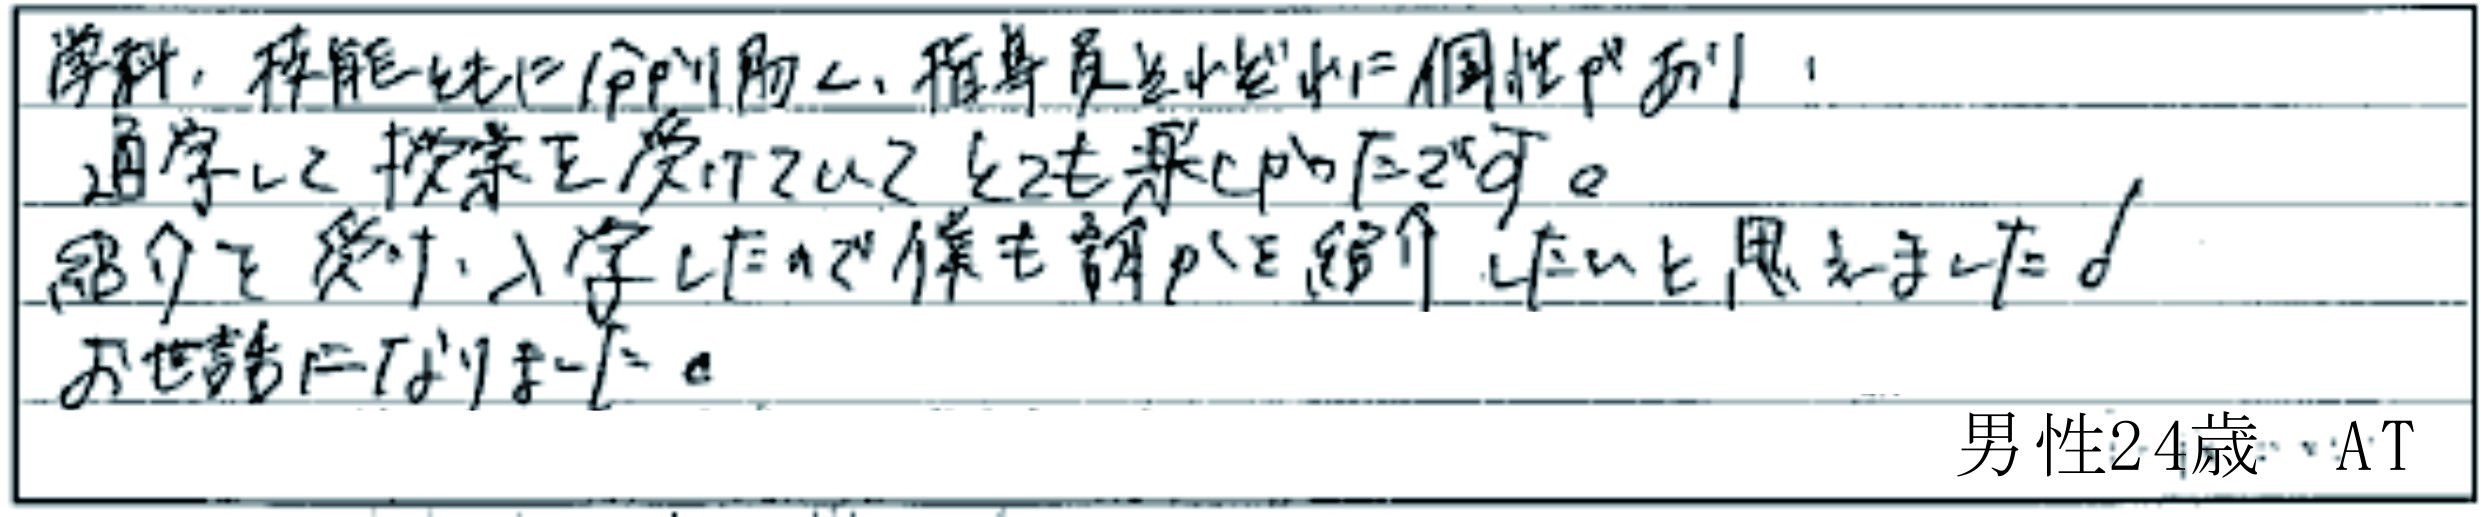 学科、技能ともに分かり易く、指導員それぞれに個性があり、
通学して授業を受けていてとても楽しかったです。
紹介を受け、入学したので僕も誰かを紹介したいと思えました。
お世話になりました。
男性24歳 AT